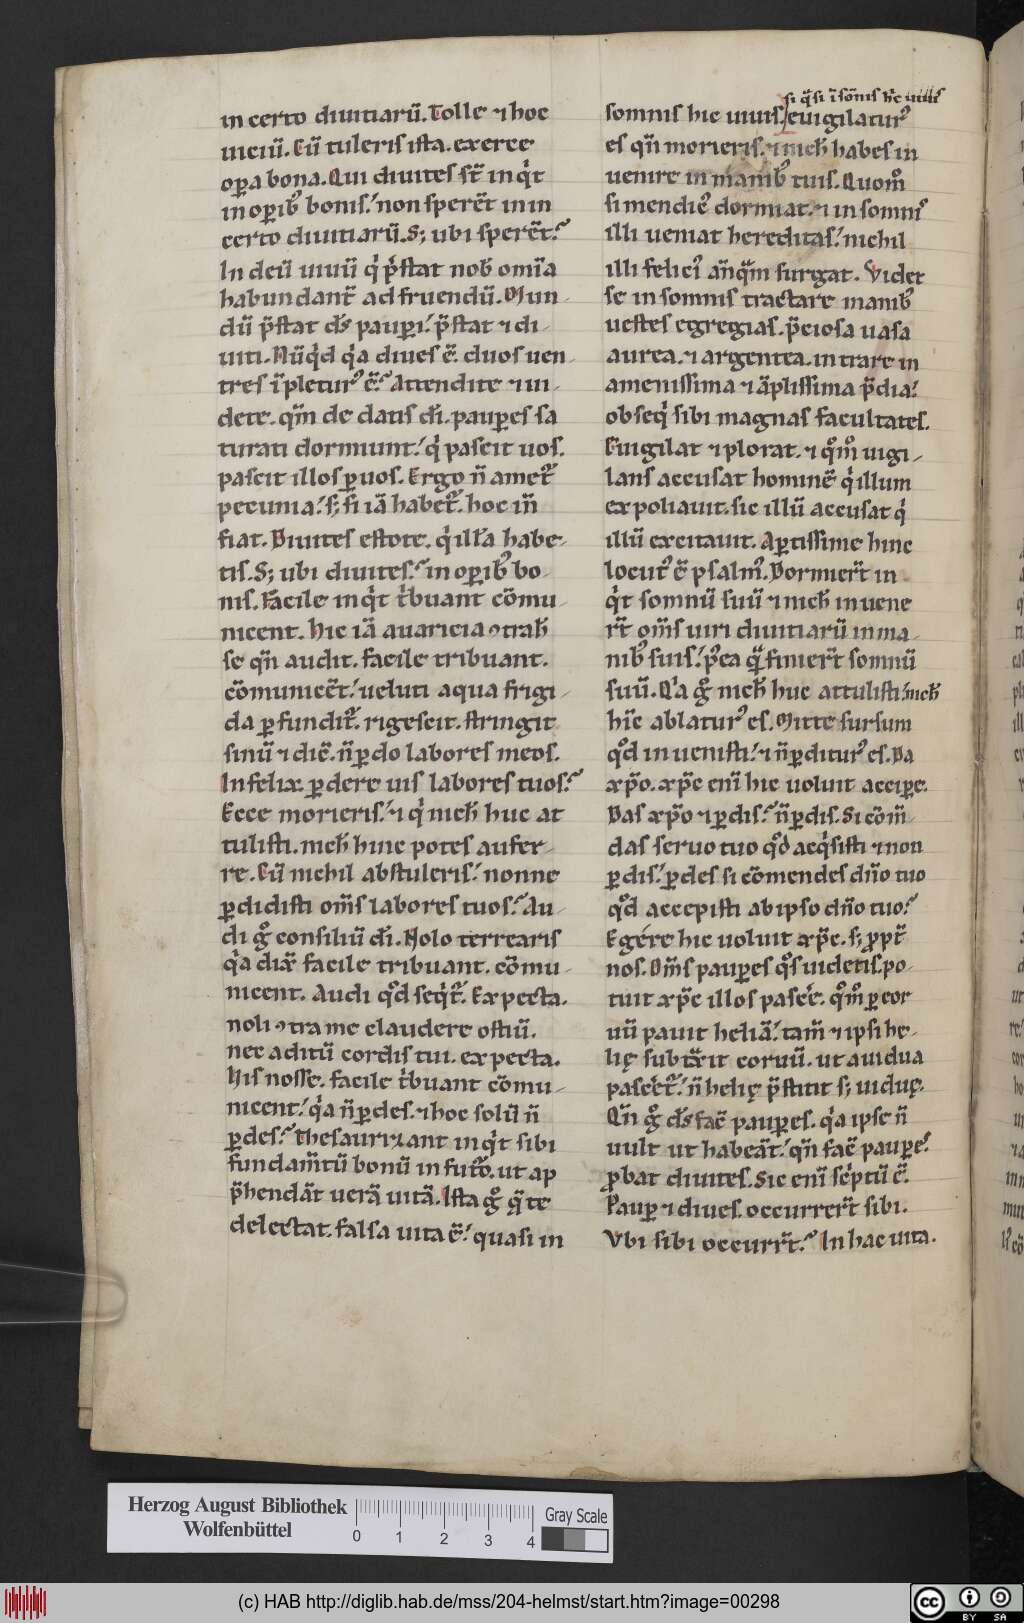 in certo diuitiarū. Tolle ⁊ hoc
uiciū. Cū tuleris ista. exerce
oꝑa bona. Qui diuites st̄ inq̇t
in oꝑib᷒ bonis. non sperēt in in
certo diuitiarū. S; ubi sperēt?
In deū uiuū q̇ p̄stat nob̄ om̄ia
habundant̄ ad fruendū. Mun
dū p̄stat ds̄ pauꝑi. p̄stat ⁊ di
uiti. Nūq̇d q̇a diues ē. duos uen
tres īpletur᷒ ē? Attendite ⁊ ui
dete. qm̄ de datis dī. pauꝑes sa
turati dormiunt. q̇ pascit uos.
pascit illos ꝑ uos. Ergo n̄ amet᷒
pecunia. s; si iā habet᷒. hoc in̄
fiat. Diuites estote. q̇ ill̄a habe
tis. S; ubi diuites? in oꝑib᷒ bo
nis. Facile inq̇t t̄buant cōmu
nicent. Hic iā auaricia ꝯtrah̄
se qn̄ audit. facile tribuant.
cōmunicēt. ueluti aqua frigi
da ꝑfundit᷒. rigescit. stringit
sinū ⁊ diē. n̄ ꝑdo labores meos.
Infelix. ꝑdere uis labores tuos?
Ecce morieris. ⁊ q̇ nich̄ huc at
tulisti. nich̄ hinc potes aufer
re. Cū nichil abstuleris. nonne
ꝑdidisti om̄s labores tuos? Au
di g̊ consiliū dī. Nolo terrearis
q̇a dix̄ facile tribuant. cōmu
nicent. Audi qd̊ seq̇t᷒. Expecta.
noli ꝯtra me claudere ostiū.
nec aditū cordis tui. expecta.
His nosse. facile t̄buant cōmu
nicent. q̇a n̄ ꝑdes. ⁊ hoc solū n̄
ꝑdes? Thesaurizant inq̇t sibi
fundam̄tū bonū in fut᷒o. ut ap
p̄hendāt uerā uitā. Ista g̊ q̄ te
delectat. falsa uita ē. quasi in
si q̄si ī sōnis h̄c uiuis
somnis hic uiuis. euigilatur᷒
es qn̄ morieris. ⁊ nich̄ habes in
uenire in manib᷒ tuis. Quom̊
si mendic᷒ dormiat. ⁊ in somni᷒
illi ueniat hereditas. nichil
illi felici᷒ an̄q̄m surgat. Videt
se in somnis tractare manib᷒
uestes egregias. p̄ciosa uasa
aurea. ⁊ argentea. intrare in
amenissima ⁊ āplissima p̄dia.
obseq̇ sibi magnas facultates.
Euigilat ⁊ plorat. ⁊ q̊m̊ uigi
lans accusat hominē q̇ illum
expoliauit. sic illū accusat q̇
illū excitauit. Aꝑtissime hinc
locut᷒ ē psalm᷒. Dormier̄t in
q̇t somnū suū ⁊ nich̄ inuene
rt̄ om̄s uiri diuitiarū in ma
nib᷒ suis. p᷒ea q̄ finier̄t somnū
suū. Q'a g̊ nich̄ huc attulisti. nich̄
hīc ablatur᷒ es. Mitte sursum
qd̊ inuenisti. ⁊ n̄ ꝑditur᷒ es. Da
xp̄o. xp̄c eni̅ hic uoluit acciꝑe.
Das xp̄o ⁊ ꝑdis? n̄ ꝑdis. Si cōm̄
das seruo tuo qd̊ acq̇sisti ⁊ non
ꝑdis. ꝑdes si cōmendes dn̄o tuo
qd̊ accepisti ab ipso dn̄o tuo?
Egere hic uoluit xp̄c. s; ꝓpt̄
nos. Om̄s pauꝑes q̊s uidetis. po
tuit xp̄c illos pasce᷒e. q̊m̊ ꝑ cor
uū pauit heliā. tam̄ ⁊ ipsi he
lię subtx̄it coruū. ut a uidua
pascēt᷒. n̄ helię p̄stitit s; uiduę.
Qn̄ g̊ ds̄ fac̄ pauꝑes. q̇a ipse n̄
uult ut habeāt. qn̄ fac̄ pauꝑe᷒.
ꝓbat diuites. Sic eni̅ sc̄ptū ē.
Pauꝑ ⁊ diues. occurrer̄t sibi.
Vbi sibi occurr̄t? In hac uita.
Herzog August Bibliothek
Wolfenbüttel
0 1 2 3 4
Gray Scale
(c) HAB http://diglib.hab.de/mss/204-helmst/start.htm?image=00298
cc BY SA